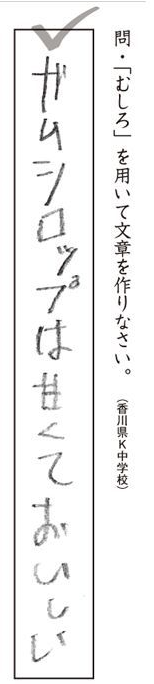 問・「むしろ」を用いて文章を作りなさい。(香川県K中学校)
ガムシロップは甘くておいしい